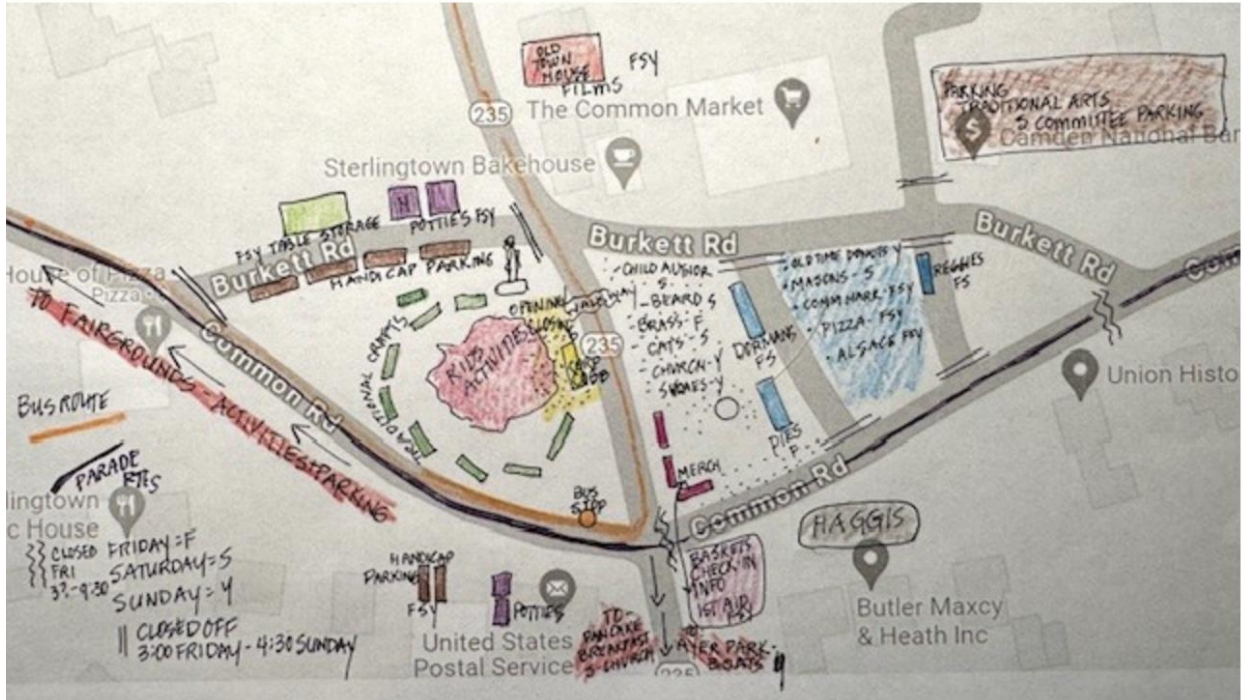 OLD
TOWN
HOUSE
FILMS
FSY
235
The Common Market
PARKING
TRADITIONAL ARTS
S COMMITTEE PARKING
Camden National Ban
Sterlingtown Bakehouse
FSY TABLE STORAGE
POTTIES FSY
H
Burkett Rd
HANDICAP PARKING
Burkett Rd
Burkett Rd
House of Pizza
Pizza
TO FAIRGROUNDS - ACTIVITIES + PARKING
Common Rd
TRADITIONAL CRAFTS
KIDS
ACTIVITIES
OPENING
CLOSING
WALKWAY
235
CHILD
- BEARD S
- BRASS - F
CATS - S
CHURCH - Y
- Y
DORMANS
FS
PIES
F
OLD TIME DONUTS Y
MASONS - S
COMM MARK. FSY
PIZZA - FSY
- ALSACE FSY
REGGIES
FS
Union Histo
BUS ROUTE
PARADE
RTES
lingtown
c House
CLOSED
FRI
FRIDAY = F
SATURDAY = S
SUNDAY = Y
CLOSED OFF
3:00 FRIDAY - 4:30 SUNDAY
BUS
STOP
MERCH
Common Rd
HAGGIS
BASKETS
CHECK-IN
INFO
1ST AID
FSY
HANDICAP
PARKING
FSY
POTTIES
United States
Postal Service
TO
PANCAKE
BREAKFAST
S-CHURCH
TO
AYER PARK-
BOATS Y
235
Butler Maxcy
& Heath Inc